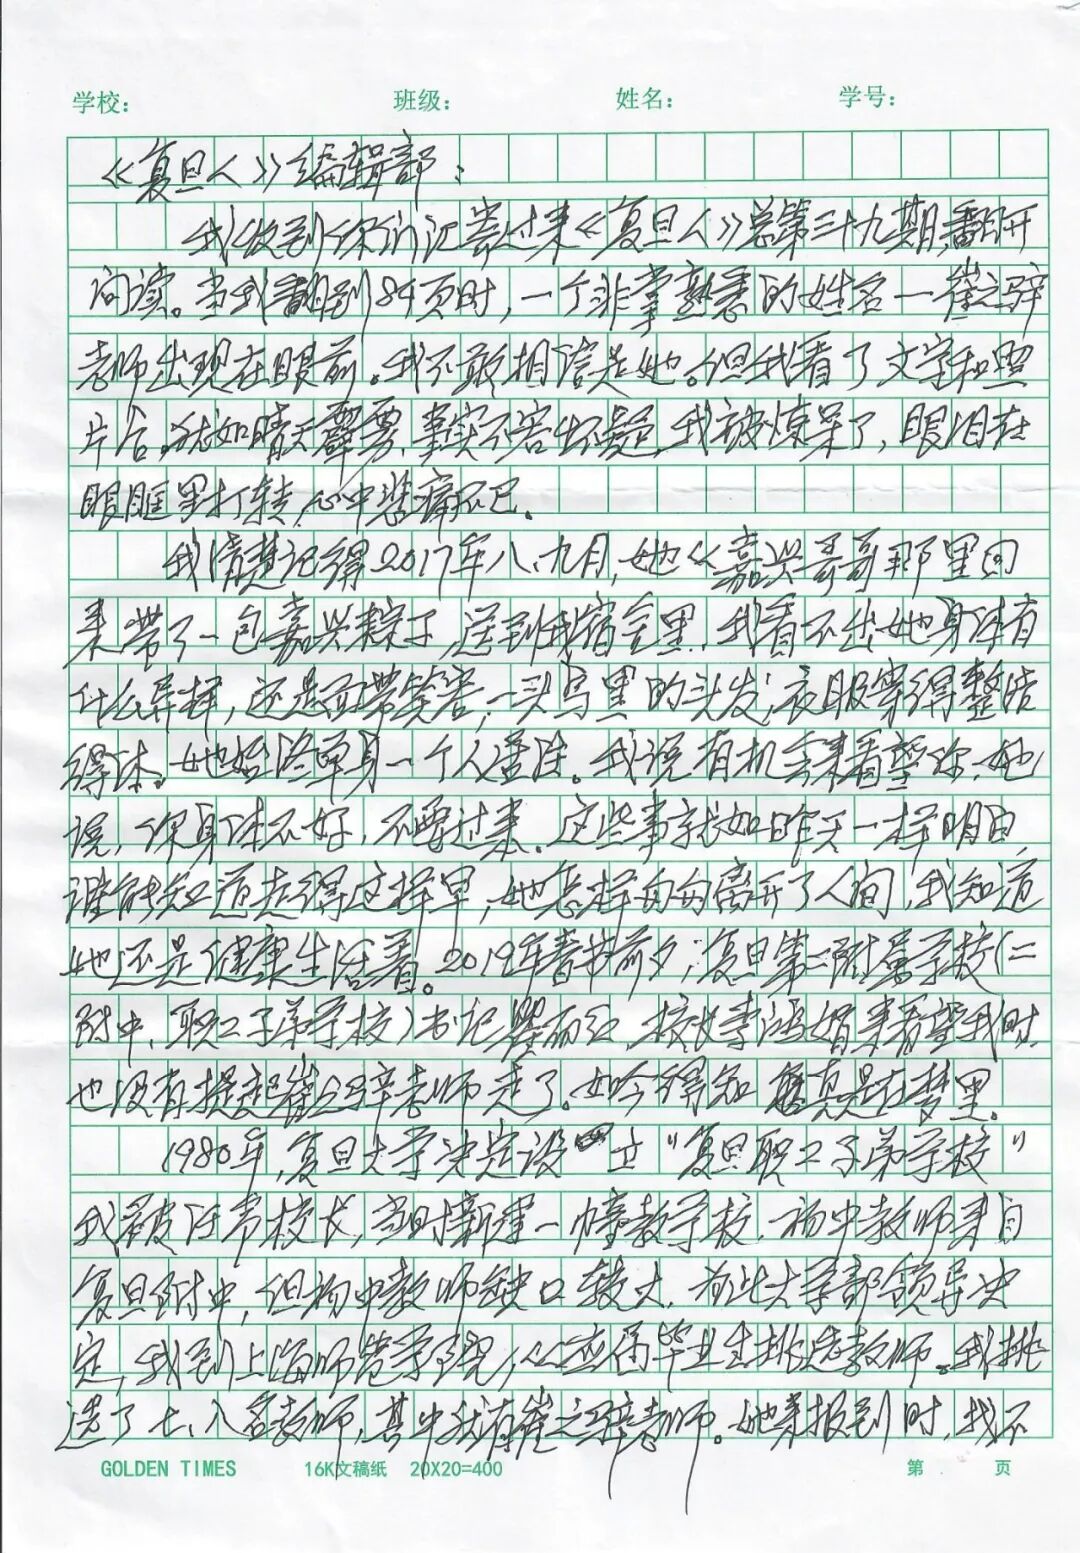 学校： 班级： 姓名： 学号：
《复旦人》编辑部：
我收到你们汇寄过来《复旦人》总第三十九期，翻开
阅读。当我翻到84页时，一个非常熟悉的姓名一崔之
老师出现在眼前。我不敢相信是她。但我看了文字和照
片后，犹如晴天霹雳，事实不容怀疑，我被惊呆了，眼泪在
眼眶里打转，心中悲痛不已。
我清楚记得2017年八、九月，她从嘉兴哥哥那里回
来带了一包嘉兴粽子，送到我宿舍里，我看不出她身体有
什么异样，还是面带笑容，一头乌黑的头发，衣服穿得整洁
得体。她始终单身一个人生活。我说有机会来看望你，她
说，你身体不好，不要过来。这些事就如昨天一样明白，
谁能知道走得这样早，她怎样匆匆离开了人间，我知道
她还是健康生活着。2019年春节前夕，复旦第二附属学校（二
附中、职工子弟学校）书记 校长李鸿娟来看望我时，
也没有提起崔之 老师走了。如今得知 真是在梦里。
1980年，复旦大学决定设立“复旦职工子弟学校”
我被任命校长，当时新建一幢教学楼，初中教师来自
复旦附中，但初中教师缺口较大，为此大学部领导决
定，我到上海师范学院，从应届毕业生挑选教师。我挑
选了七、八名教师，其中就有崔之 老师。她来报到时，我不
GOLDEN TIMES 16K文稿纸 20X20=400 第 页